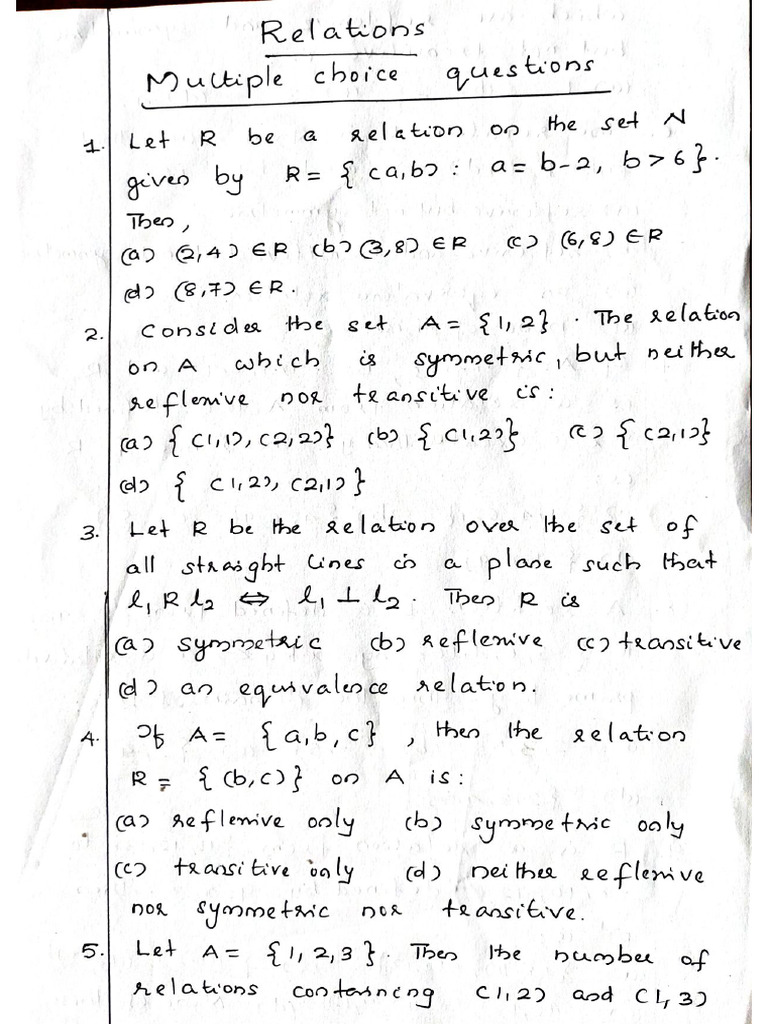 Relations
Multiple choice questions
1. Let R be a relation on the set N
given by R = { (a,b) : a = b-2, b > 6 }.
Then,
(a) (2,4) ∈ R (b) (3,8) ∈ R (c) (6,8) ∈ R
(d) (8,7) ∈ R.
2. Consider the set A = {1,2}. The relation
on A which is symmetric, but neither
reflexive nor transitive is :
(a) { (1,1), (2,2) } (b) { (1,2) } (c) { (2,1) }
(d) { (1,2), (2,1) }
3. Let R be the relation over the set of
all straight lines in a plane such that
l₁ R l₂ ⇔ l₁ ⊥ l₂. Then R is
(a) symmetric (b) reflexive (c) transitive
(d) an equivalence relation.
4. If A = {a,b,c}, then the relation
R = {(b,c)} on A is :
(a) reflexive only (b) symmetric only
(c) transitive only (d) neither reflexive
nor symmetric nor transitive.
5. Let A = {1,2,3}. Then the number of
relations containing (1,2) and (1,3)